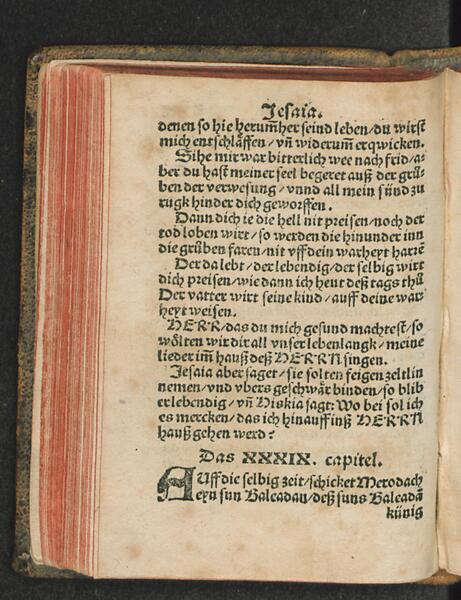 Jesaia.
denen so hie herum̃her seind leben/du wirst
mich entschlaffen/vñ widerum̃ erquicken.
Sihe mir war bitterlich wee nach frid/a⸗
ber du hast meiner seel begeret auß der grů⸗
ben der verwesung/vnnd all mein sünd zu
rugk hinder dich geworffen.
Dann dich ie die hell nit preisen/noch der
tod loben wirt/so werden die hinunder inn
die grůben faren/nit vff dein warheyt harrẽ
Der da lebt/der lebendig/der selbig wirt
dich preisen/wie dann ich heut deß tags thů
Der vatter wirt seine kind/auff deine war⸗
heyt weisen.
HERR/das du mich gesund machtest/so
wölten wir dir all vnser lebenlangk/meine
lieder im̃ hauß deß HERRN singen.
Jesaia aber saget/sie solten feigenzeltlin
nemen/vnd vbers geschwär binden/so blib
er lebendig/vñ Hiskia sagt: Wo bei sol ich
es mercken/das ich hinauff inß HERRN
hauß gehen werd?
Das XXXIX. capitel.
AUff die selbig zeit/schicket Merodach
eyn sun Baleadan/deß suns Baleadã
künig